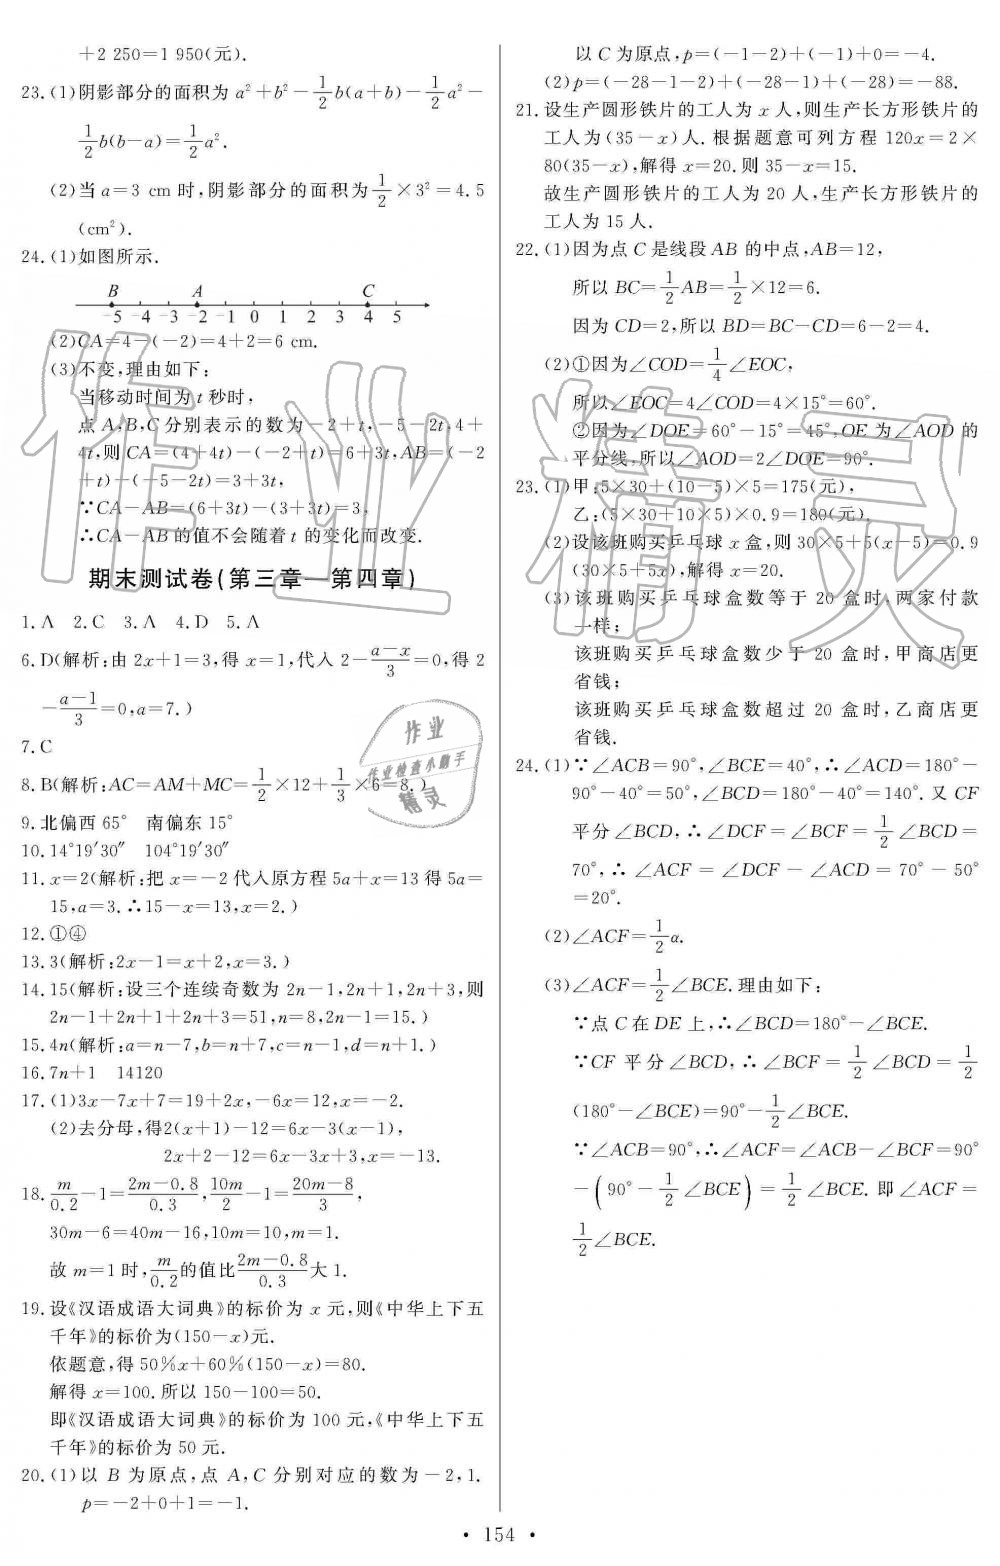 +2 250=1 950(元).
23.(1)阴影部分的面积为 a²+b²-1/2b(a+b)-1/2a²-
1/2b(b-a)=1/2a².
(2)当 a=3 cm 时,阴影部分的面积为1/2×3²=4.5
(cm²).
24.(1)如图所示.
B A C
-5 -4 -3 -2 -1 0 1 2 3 4 5
(2)CA=4-(-2)=4+2=6 cm.
(3)不变,理由如下:
当移动时间为 t 秒时,
点 A,B,C 分别表示的数为-2+t,-5-2t,4+
4t,则 CA=(4+4t)-(-2+t)=6+3t,AB=(-2
+t)-(-5-2t)=3+3t,
∵CA-AB=(6+3t)-(3+3t)=3,
∴CA-AB 的值不会随着 t 的变化而改变.
期末测试卷(第三章—第四章)
1.A 2.C 3.A 4.D 5.A
6.D(解析:由 2x+1=3,得 x=1,代入 2-(a-x)/3=0,得 2
-(a-1)/3=0,a=7.)
7.C
8.B(解析:AC=AM+MC=1/2×12+1/3×6=8.)
9.北偏西 65° 南偏东 15°
10.14°19′30″ 104°19′30″
11.x=2(解析:把 x=-2 代入原方程 5a+x=13 得 5a=
15,a=3.∴15-x=13,x=2.)
12.①④
13.3(解析:2x-1=x+2,x=3.)
14.15(解析:设三个连续奇数为 2n-1,2n+1,2n+3,则
2n-1+2n+1+2n+3=51,n=8,2n-1=15.)
15.4n(解析:a=n-7,b=n+7,c=n-1,d=n+1.)
16.7n+1 14120
17.(1)3x-7x+7=19+2x,-6x=12,x=-2.
(2)去分母,得2(x+1)-12=6x-3(x-1),
2x+2-12=6x-3x+3,x=-13.
18.m/0.2-1=(2m-0.8)/0.3,10m/2-1=(20m-8)/3,
30m-6=40m-16,10m=10,m=1.
故 m=1 时,m/0.2的值比(2m-0.8)/0.3大 1.
19.设《汉语成语大词典》的标价为 x 元,则《中华上下五
千年》的标价为(150-x)元.
依题意,得 50%x+60%(150-x)=80.
解得 x=100.所以 150-100=50.
即《汉语成语大词典》的标价为 100 元,《中华上下五
千年》的标价为 50 元.
20.(1)以 B 为原点,点 A,C 分别对应的数为-2,1.
p=-2+0+1=-1.
以 C 为原点,p=(-1-2)+(-1)+0=-4.
(2)p=(-28-1-2)+(-28-1)+(-28)=-88.
21.设生产圆形铁片的工人为 x 人,则生产长方形铁片的
工人为(35-x)人.根据题意可列方程 120x=2×
80(35-x),解得 x=20.则 35-x=15.
故生产圆形铁片的工人为 20 人,生产长方形铁片的
工人为 15 人.
22.(1)因为点 C 是线段 AB 的中点,AB=12,
所以 BC=1/2AB=1/2×12=6.
因为 CD=2,所以 BD=BC-CD=6-2=4.
(2)①因为∠COD=1/4∠EOC,
所以∠EOC=4∠COD=4×15°=60°.
②因为∠DOE=60°-15°=45°,OE 为∠AOD 的
平分线,所以∠AOD=2∠DOE=90°.
23.(1)甲:5×30+(10-5)×5=175(元),
乙:(5×30+10×5)×0.9=180(元).
(2)设该班购买乒乓球 x 盒,则 30×5+5(x-5)=0.9
(30×5+5x),解得 x=20.
(3)该班购买乒乓球盒数等于 20 盒时,两家付款
一样;
该班购买乒乓球盒数少于 20 盒时,甲商店更
省钱;
该班购买乒乓球盒数超过 20 盒时,乙商店更
省钱.
24.(1)∵∠ACB=90°,∠BCE=40°,∴∠ACD=180°-
90°-40°=50°,∠BCD=180°-40°=140°.又 CF
平分∠BCD,∴∠DCF=∠BCF=1/2∠BCD=
70°,∴∠ACF=∠DCF-∠ACD=70°-50°
=20°.
(2)∠ACF=1/2α.
(3)∠ACF=1/2∠BCE.理由如下:
∵点 C 在 DE 上,∴∠BCD=180°-∠BCE.
∵CF 平分∠BCD,∴∠BCF=1/2∠BCD=1/2
(180°-∠BCE)=90°-1/2∠BCE.
∵∠ACB=90°,∴∠ACF=∠ACB-∠BCF=90°
-(90°-1/2∠BCE)=1/2∠BCE.即∠ACF=
1/2∠BCE.
• 154 •
作业精灵
作业
作业检查小助手
精灵